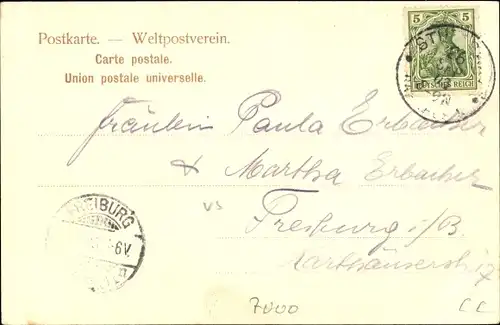 Postkarte. — Weltpostverein.
Carte postale.
Union postale universelle.
5 5
DEUTSCHES REICH
Fräulein Paula Erbacher
& Martha Erbacher
vs
Freiburg i/B.
Karthäuserstr.
FREIBURG
-6V.
7000
CC